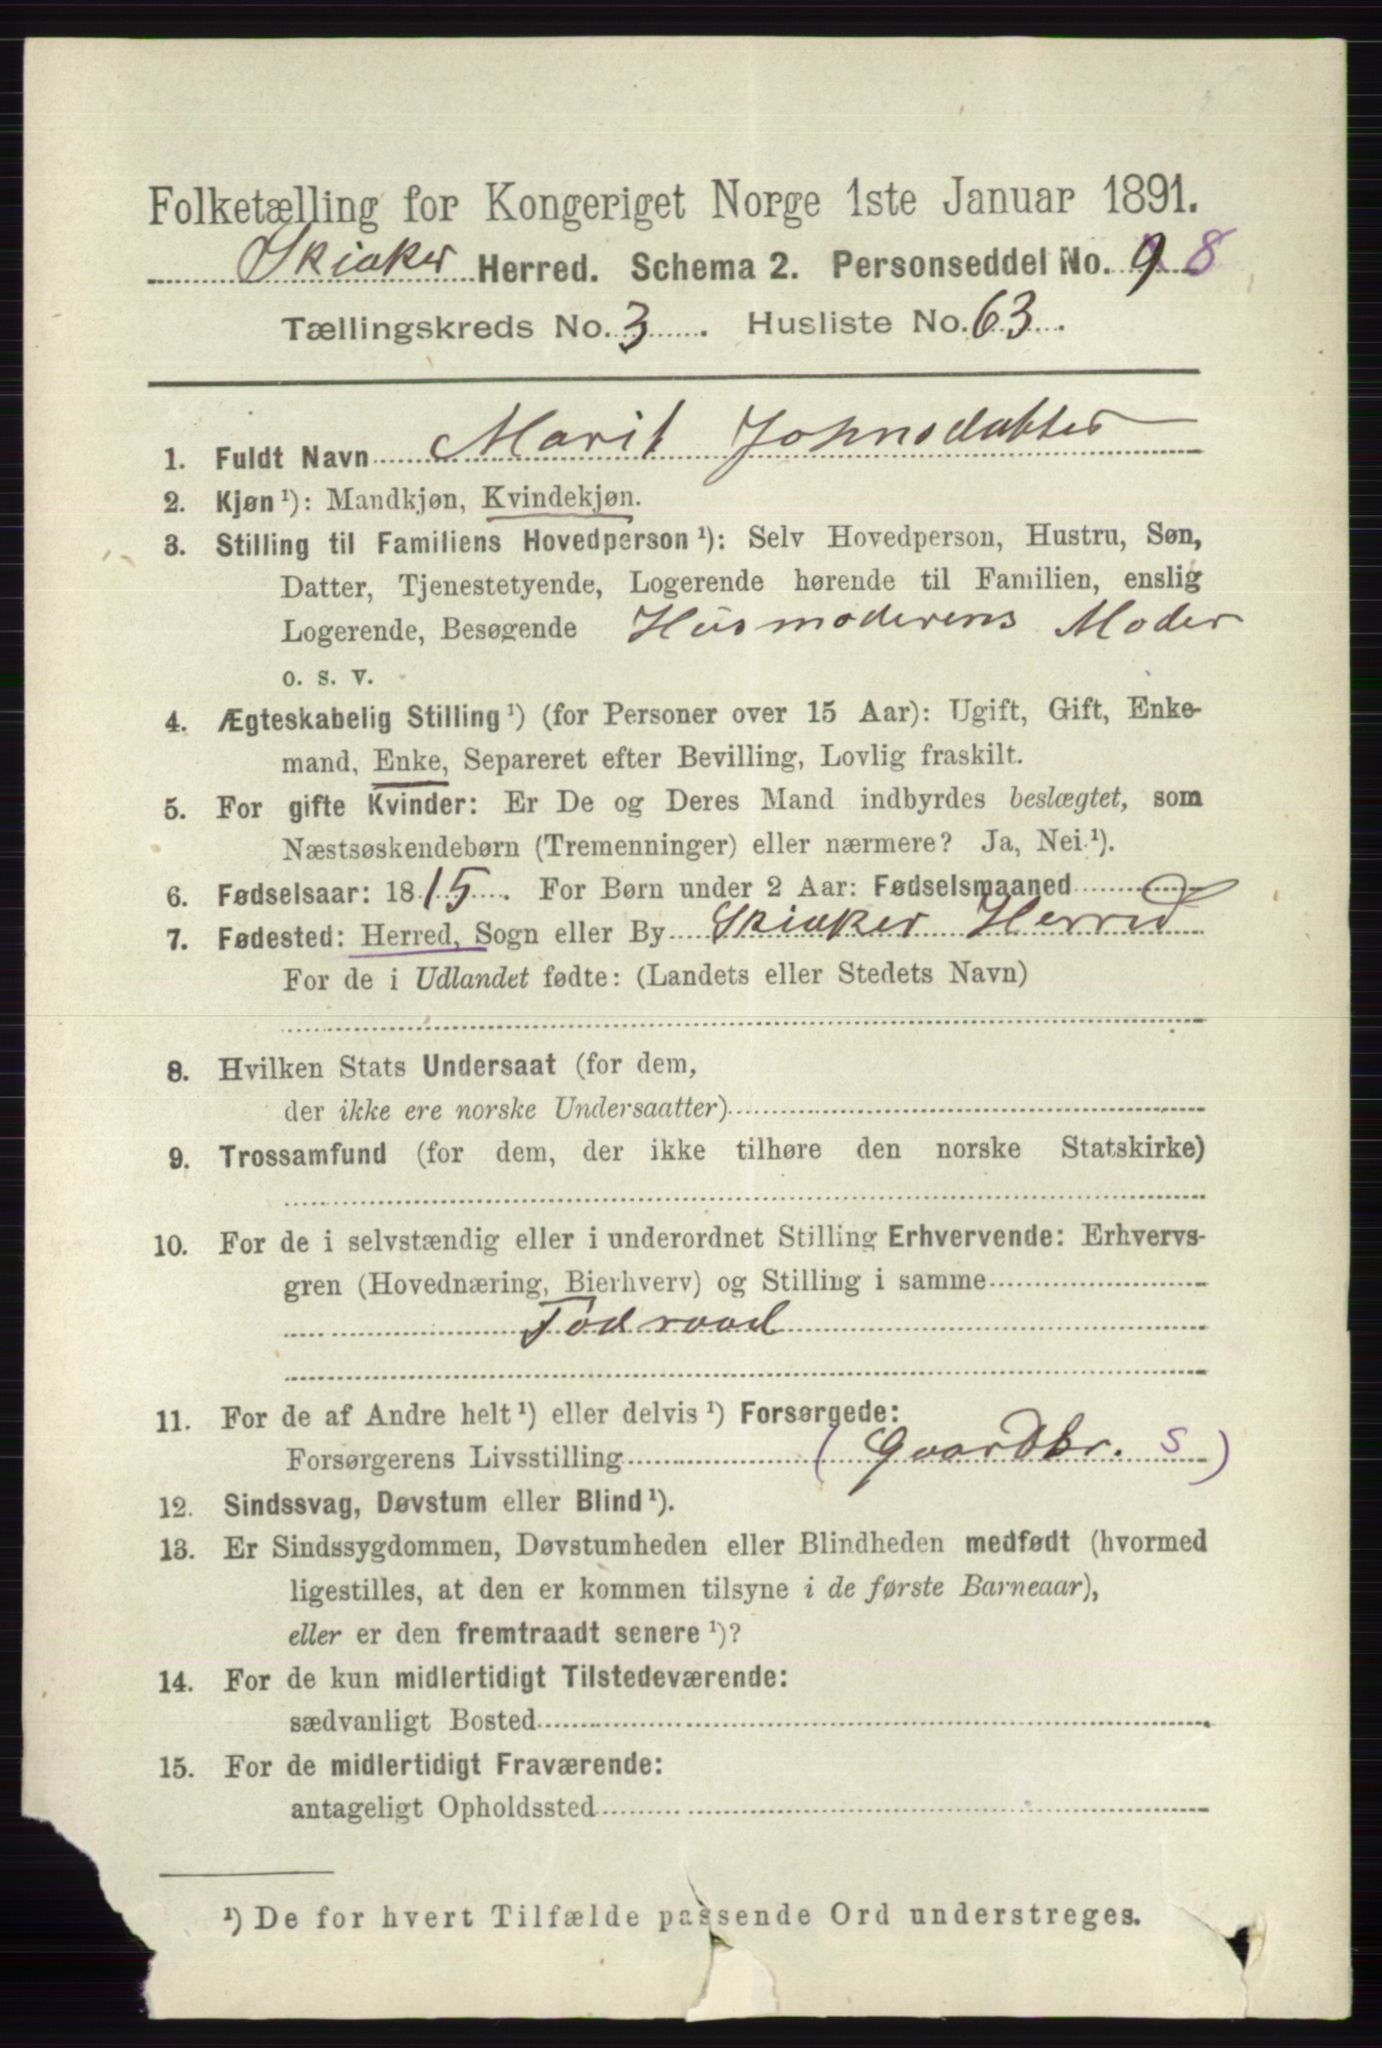 Folketælling for Kongeriget Norge 1ste Januar 1891.
Skiaker Herred. Schema 2. Personseddel No. 9 8
Tællingskreds No. 3. Husliste No. 63.
1. Fuldt Navn Marit Johnsdatter
2. Kjøn¹): Mandkjøn, Kvindekjøn.
3. Stilling til Familiens Hovedperson¹): Selv Hovedperson, Hustru, Søn,
Datter, Tjenestetyende, Logerende hørende til Familien, enslig
Logerende, Besøgende Husmoderens Moder
o. s. v.
4. Ægteskabelig Stilling¹) (for Personer over 15 Aar): Ugift, Gift, Enke-
mand, Enke, Separeret efter Bevilling, Lovlig fraskilt.
5. For gifte Kvinder: Er De og Deres Mand indbyrdes beslægtet, som
Næstsøskendebørn (Tremenninger) eller nærmere? Ja, Nei¹).
6. Fødselsaar: 1815. For Børn under 2 Aar: Fødselsmaaned
7. Fødested: Herred, Sogn eller By Skiaker Herred
For de i Udlandet fødte: (Landets eller Stedets Navn)
8. Hvilken Stats Undersaat (for dem,
der ikke ere norske Undersaatter)
9. Trossamfund (for dem, der ikke tilhøre den norske Statskirke)
10. For de i selvstændig eller i underordnet Stilling Erhvervende: Erhvervs-
gren (Hovednæring, Bierhverv) og Stilling i samme
Fodraad
11. For de af Andre helt¹) eller delvis¹) Forsørgede:
Forsørgerens Livsstilling (Gaardbr. S)
12. Sindssvag, Døvstum eller Blind¹).
13. Er Sindssygdommen, Døvstumheden eller Blindheden medfødt (hvormed
ligestilles, at den er kommen tilsyne i de første Barneaar),
eller er den fremtraadt senere¹)?
14. For de kun midlertidigt Tilstedeværende:
sædvanligt Bosted
15. For de midlertidigt Fraværende:
antageligt Opholdssted
¹) De for hvert Tilfælde passende Ord understreges.